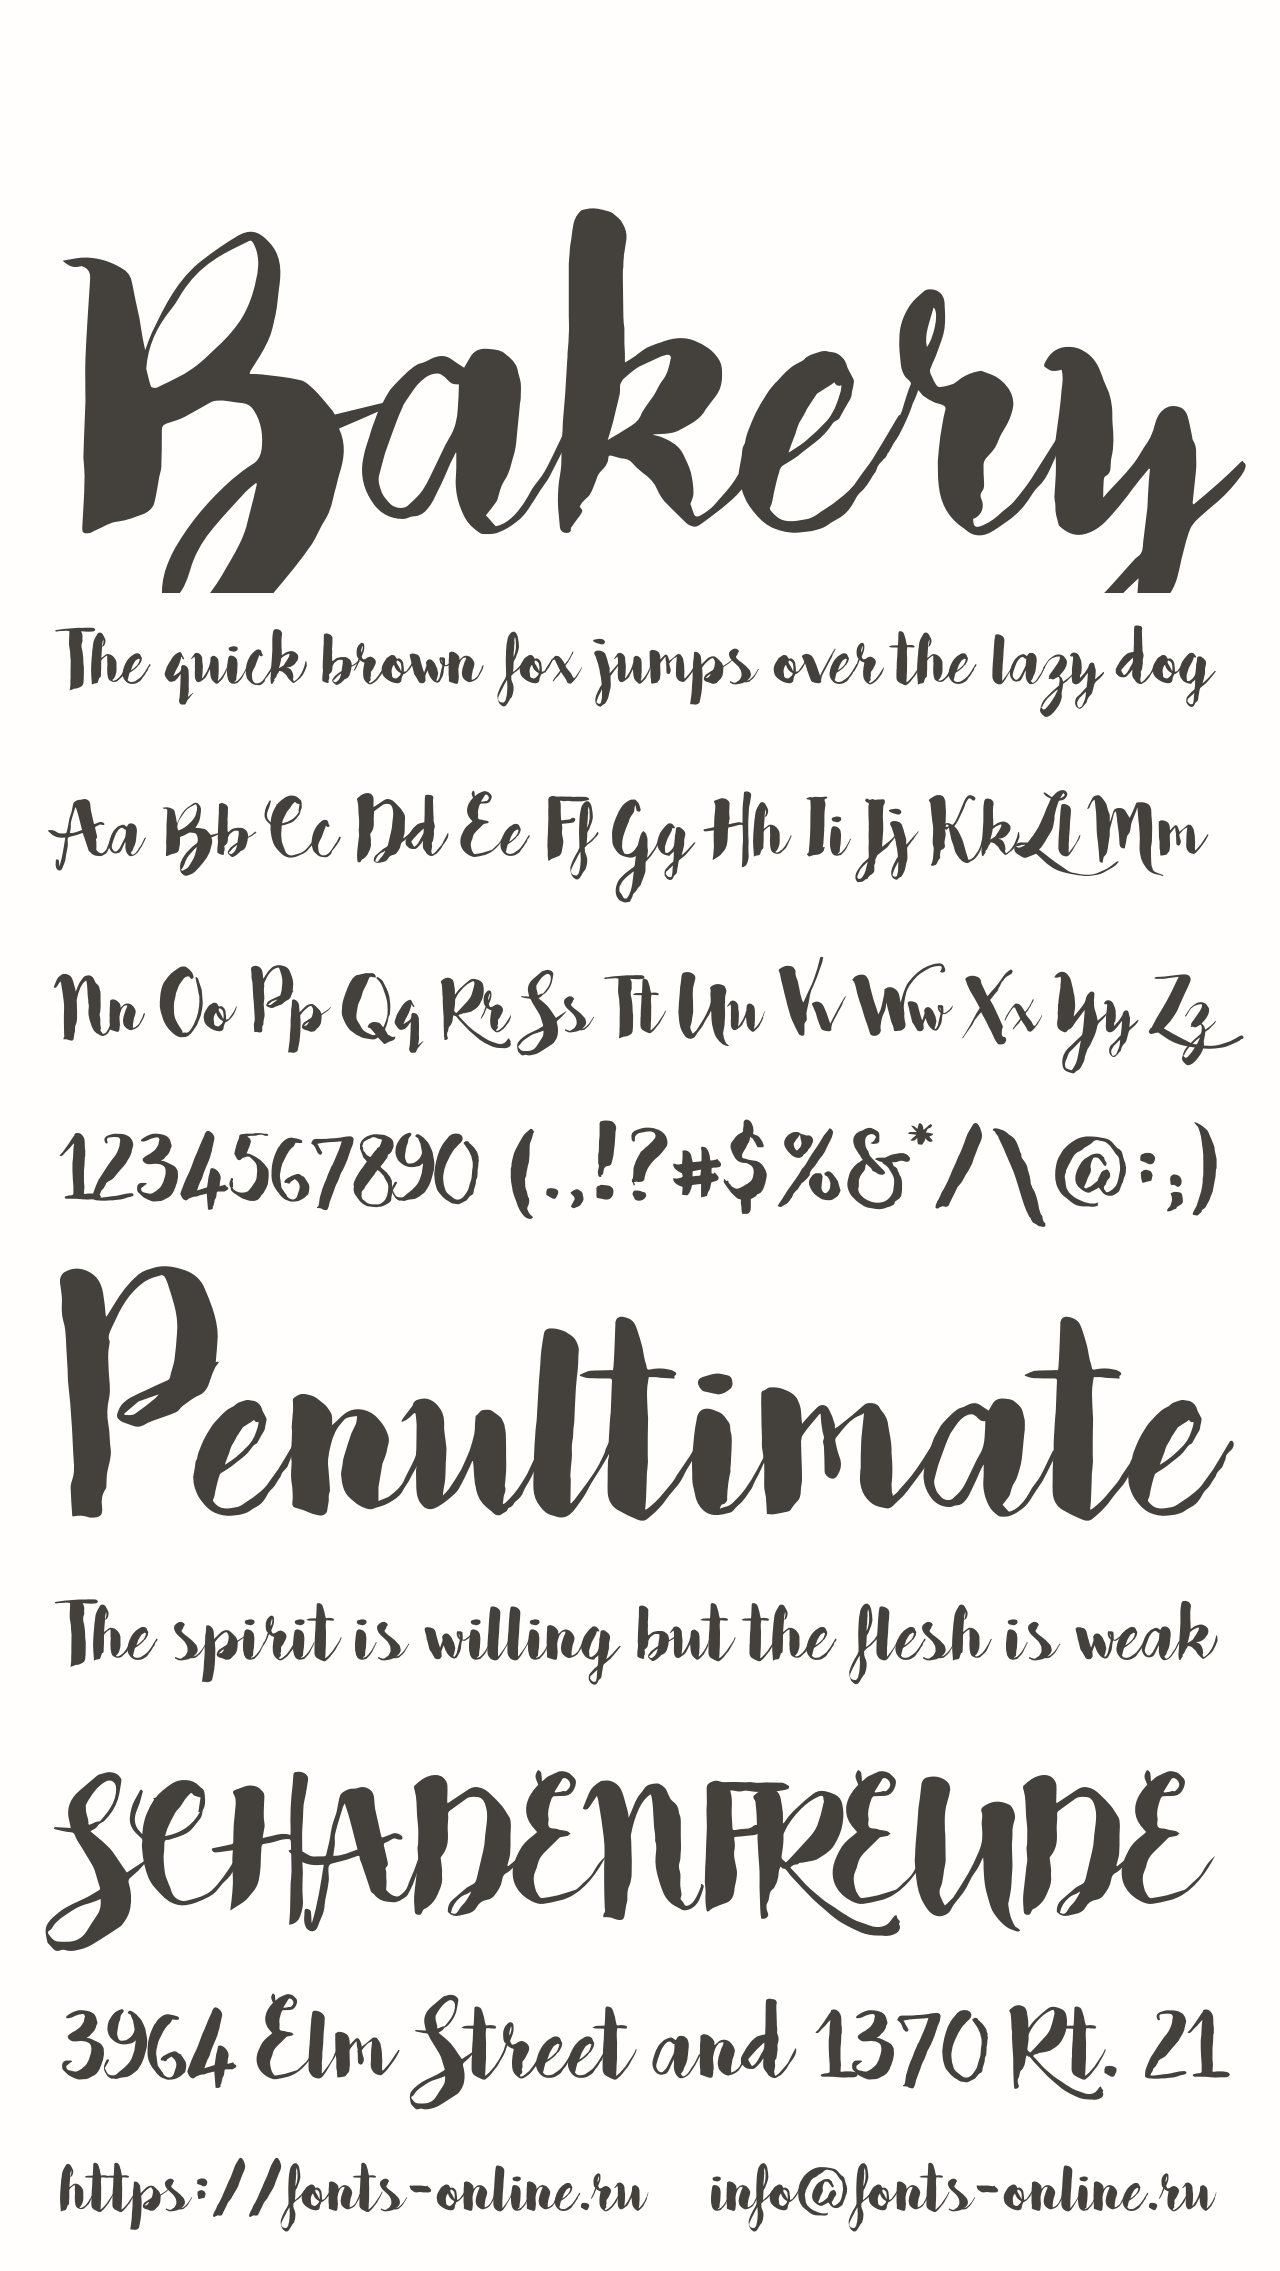 Bakery
The quick brown fox jumps over the lazy dog
Aa Bb Cc Dd Ee Ff Gg Hh Ii Jj Kk Ll Mm
Nn Oo Pp Qq Rr Ss Tt Uu Vv Ww Xx Yy Zz
1234567890 (.,!?#$%&*/\@:;)
Penultimate
The spirit is willing but the flesh is weak
SCHADENFREUDE
3964 Elm Street and 1370 Rt. 21
https://fonts-online.ru info@fonts-online.ru